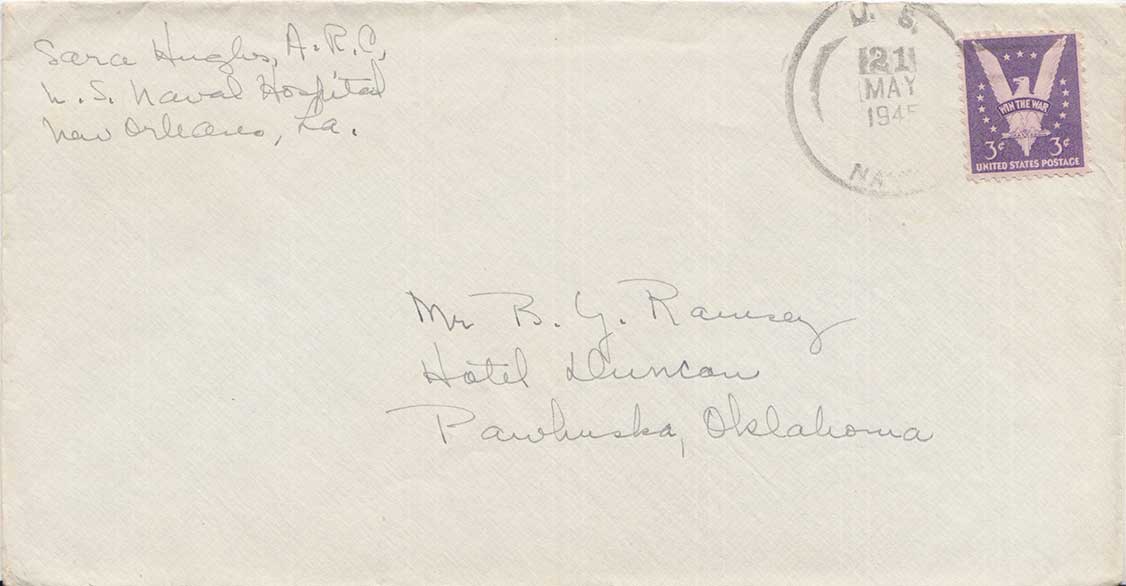 Sara Hughes, A.R.C.
U.S. Naval Hospital
New Orleans, La.
U. S.
21
MAY
1945
WIN THE WAR
3¢ 3¢
UNITED STATES POSTAGE
Mr B. Y. Ramsey
Hotel Duncan
Pawhuska, Oklahoma